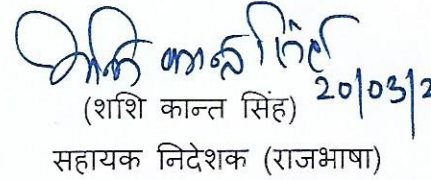 शशि कान्त सिंह
20/03/2
(शशि कान्त सिंह)
सहायक निदेशक (राजभाषा)